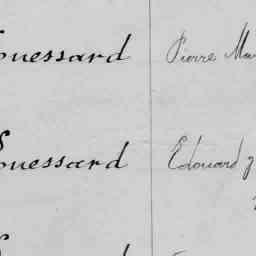 ouessard Pierre
ouessard Edouard